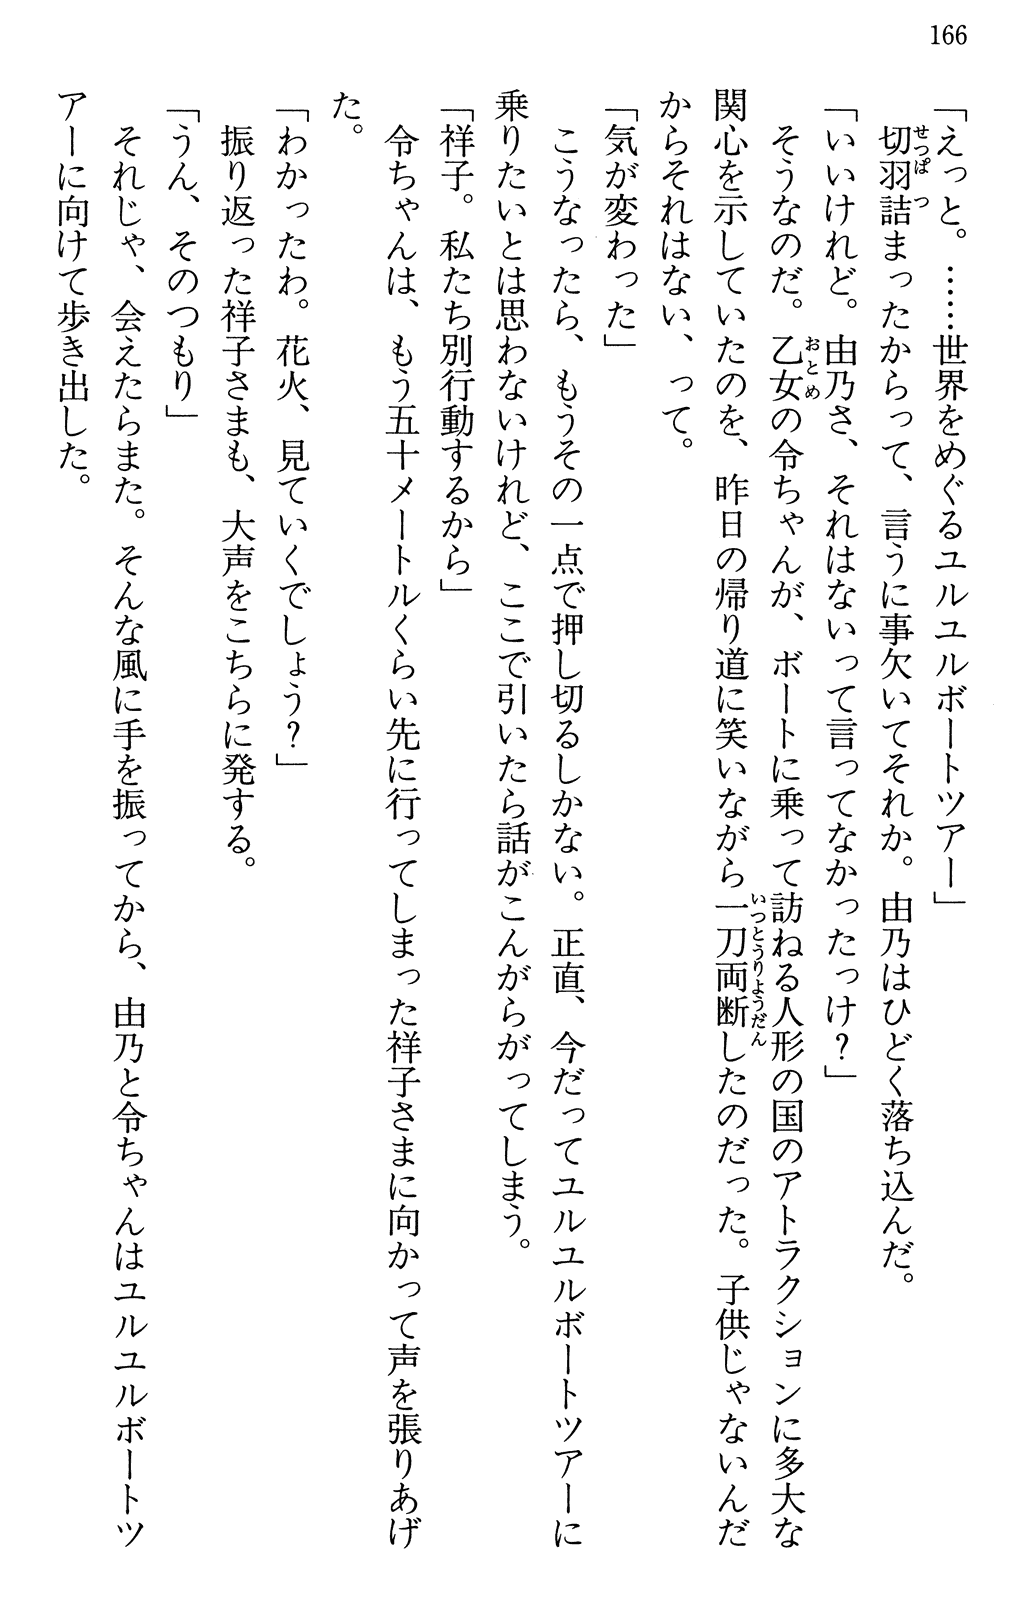 166
「えっと。……世界をめぐるユルユルボートツアー」
切羽詰まったからって、言うに事欠いてそれか。由乃はひどく落ち込んだ。
「いいけれど。由乃さ、それはないって言ってなかったっけ？」
そうなのだ。乙女の令ちゃんが、ボートに乗って訪ねる人形の国のアトラクションに多大な
関心を示していたのを、昨日の帰り道に笑いながら一刀両断したのだった。子供じゃないんだ
からそれはない、って。
「気が変わった」
こうなったら、もうその一点で押し切るしかない。正直、今だってユルユルボートツアーに
乗りたいとは思わないけれど、ここで引いたら話がこんがらがってしまう。
「祥子。私たち別行動するから」
令ちゃんは、もう五十メートルくらい先に行ってしまった祥子さまに向かって声を張りあげ
た。
「わかったわ。花火、見ていくでしょう？」
振り返った祥子さまも、大声をこちらに発する。
「うん、そのつもり」
それじゃ、会えたらまた。そんな風に手を振ってから、由乃と令ちゃんはユルユルボートツ
アーに向けて歩き出した。